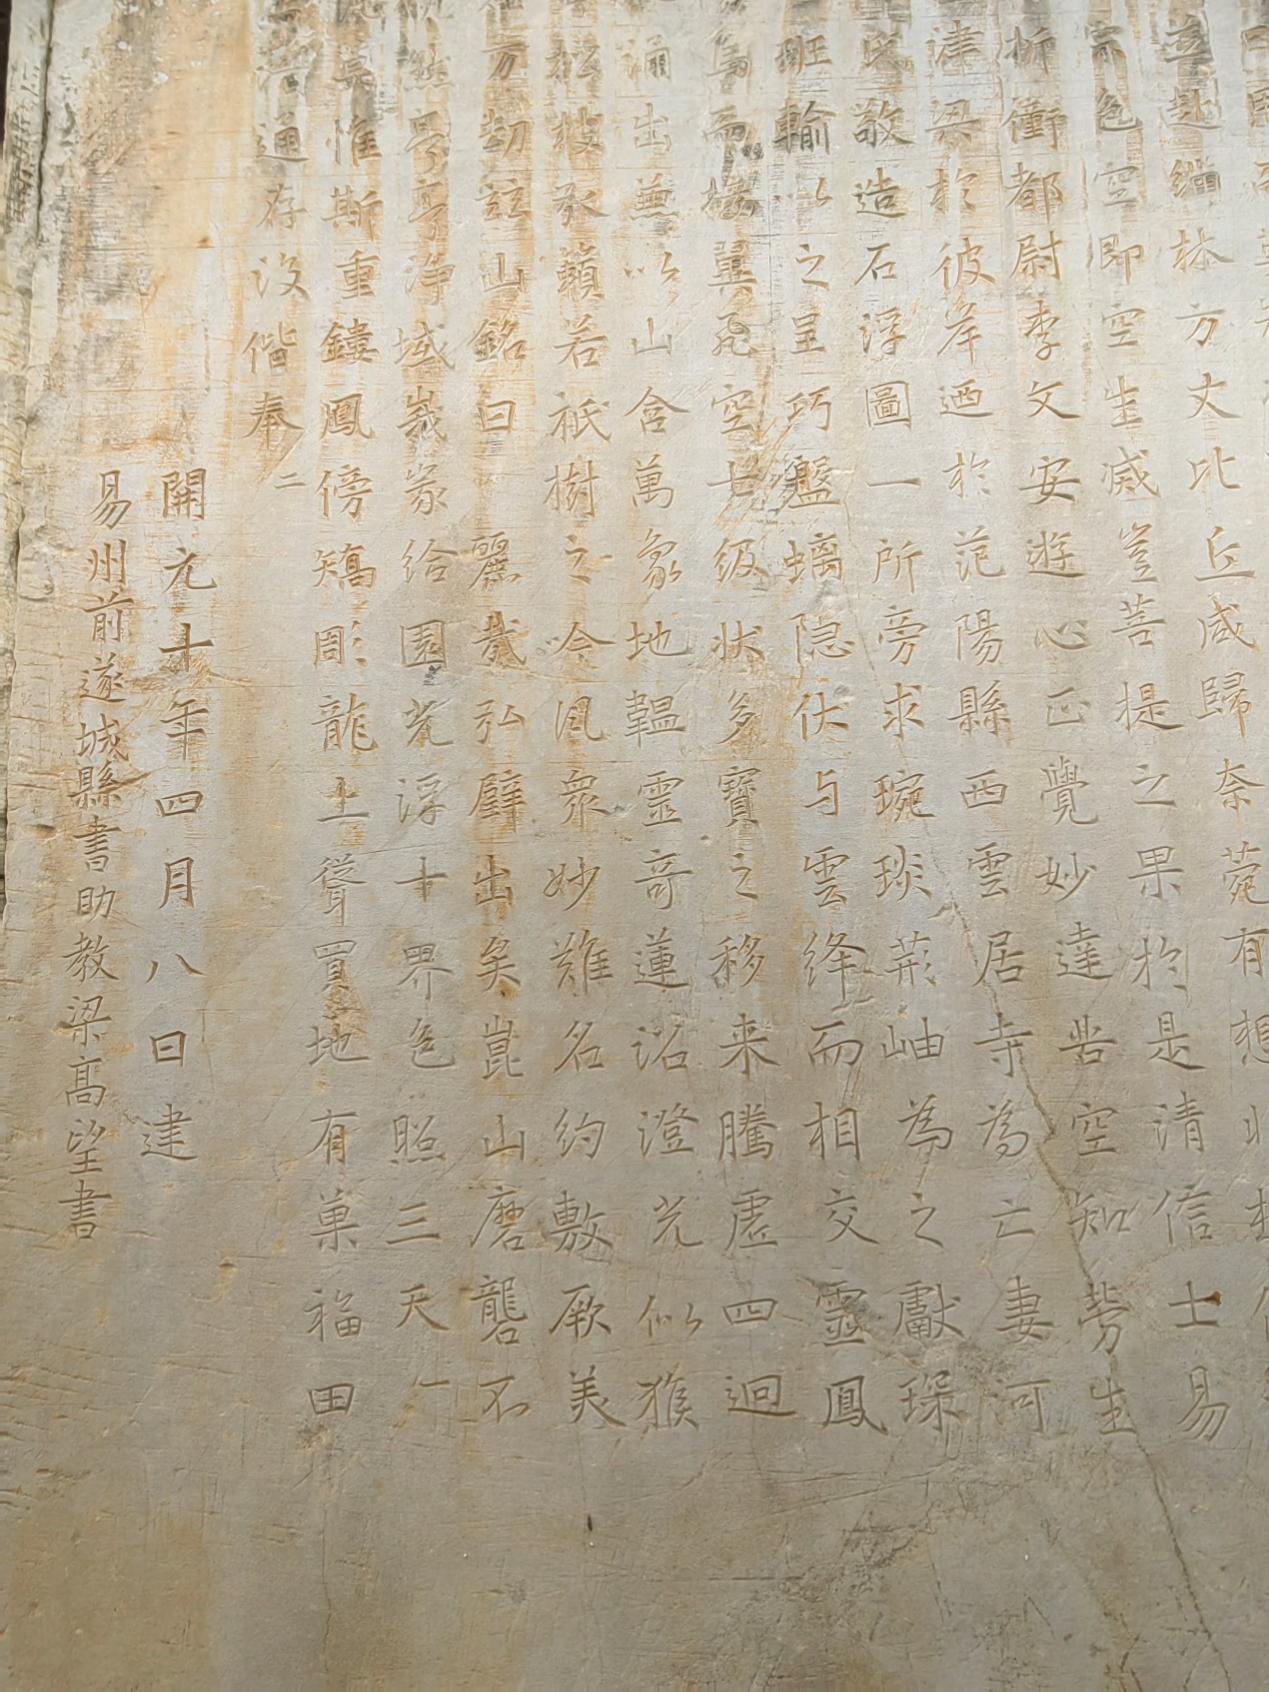 想
並赴緇林方丈比丘咸歸奈菀有
色空即空生滅豈菩提之果於是清信士易
折衝都尉李文安遊心正覺妙達苦空知勞生
津梁於彼岸迺於范陽縣西雲居寺為亡妻河
氏敬造石浮圖一所旁求琬琰荊岫為之獻琛
班輸以之呈巧盤螭隐伏与雲絳而相交靈鳳
為而接翼飛空七級状多寶之移来騰虛四迥
涌出蕪以山含萬象地韞靈奇蓮沼澄光似猴
松枝承籟若祇樹之吟風衆妙難名約敷厥美
万劫玆山銘曰 麗哉弘壁出矣崑山磨礱不
浄域峩峩給園光浮十界色照三天
惟斯重鏤鳳傍矯彫龍土聳買地有菓福田
通存没偕奉 二
開元十年四月八日建
易州前遂城縣書助教梁髙望書